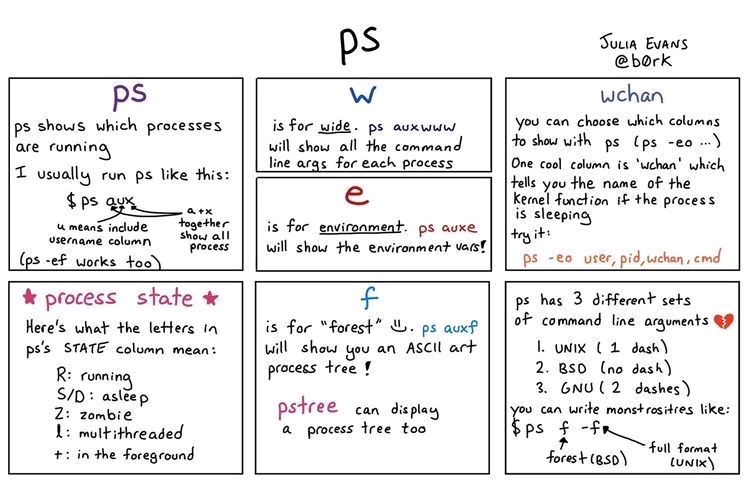 ps
JULIA EVANS
@b0rk
ps
ps shows which processes
are running
I usually run ps like this:
$ ps aux
u means include
username column
a+x
together
show all
process
(ps -ef works too)
w
is for wide. ps auxwww
will show all the command
line args for each process
e
is for environment. ps auxe
will show the environment vars!
wchan
you can choose which columns
to show with ps (ps -eo ...)
One cool column is 'wchan' which
tells you the name of the
Kernel function if the process
is sleeping
try it:
ps -eo user,pid,wchan,cmd
★ process state ★
Here's what the letters in
ps's STATE column mean:
R: running
S/D: asleep
Z: zombie
l: multithreaded
+: in the foreground
f
is for "forest" ps auxf
will show you an ASCII art
process tree!
pstree can display
a process tree too
ps has 3 different sets
of command line arguments 💔
1. UNIX (1 dash)
2. BSD (no dash)
3. GNU (2 dashes)
you can write monstrosities like:
$ ps f -f
forest (BSD)
full format
(UNIX)